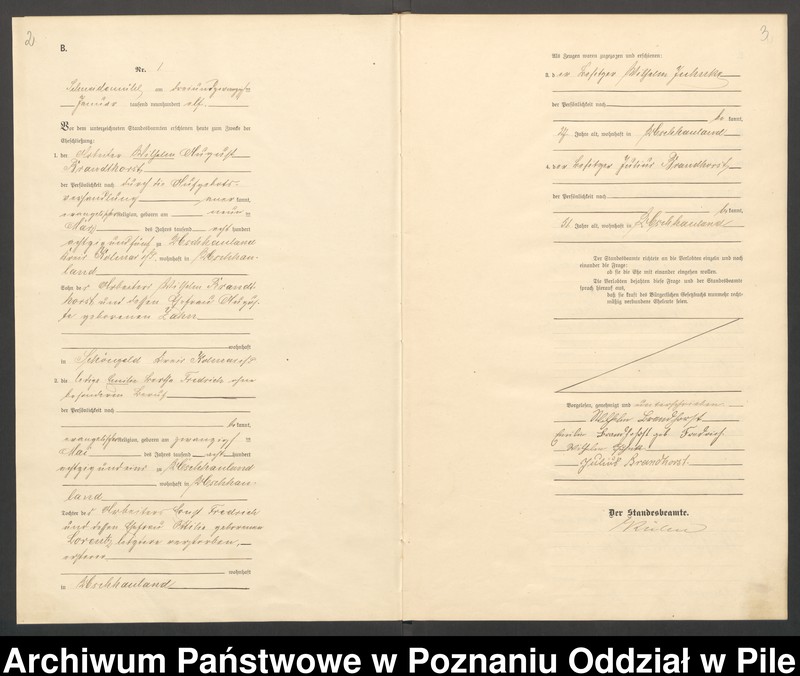 2
B.
Nr. 1
Schneidemühl am dreiundzwanzigsten
Januar tausend neunhundert elf.
Vor dem unterzeichneten Standesbeamten erschienen heute zum Zwecke der
Eheschließung:
1. der Arbeiter Wilhelm August
Brandthorst
der Persönlichkeit nach durch die Aufgebots-
verhandlung anerkannt,
evangelischer Religion, geboren am neunten
März des Jahres tausend acht hundert
achtzig und fünf zu
Kreis Kolmar i/P., wohnhaft in
land
Sohn des Arbeiters Wilhelm Brandt-
horst und dessen Ehefrau
geborenen Zahn
wohnhaft
in Kreis Kolmar i/P
2. die ledige Emilie Bertha Fredrich ohne
besonderen Beruf
der Persönlichkeit nach
be kannt,
evangelischer Religion, geboren am zwanzigsten
Mai des Jahres tausend acht hundert
achtzig und eins zu
wohnhaft in
land
Tochter des Arbeiters Fredrich
und dessen Ehefrau geborenen
letztere verstorben,
ersterer
wohnhaft
in
3
Als Zeugen waren zugezogen und erschienen:
3. der Besitzer Wilhelm
der Persönlichkeit nach
be kannt,
Jahre alt, wohnhaft in
4. der Besitzer Julius Brandhorst
der Persönlichkeit nach
be kannt,
31 Jahre alt, wohnhaft in
Der Standesbeamte richtete an die Verlobten einzeln und nach
einander die Frage:
ob sie die Ehe mit einander eingehen wollen.
Die Verlobten bejahten diese Frage und der Standesbeamte
sprach hierauf aus,
daß sie kraft des Bürgerlichen Gesetzbuchs nunmehr recht-
mäßig verbundene Eheleute seien.
Vorgelesen, genehmigt und unterschrieben
Wilhelm Brandhorst
Emilie Brandhorst geb Fredrich
Wilhelm
Julius Brandhorst
Der Standesbeamte.
Archiwum Państwowe w Poznaniu Oddział w Pile